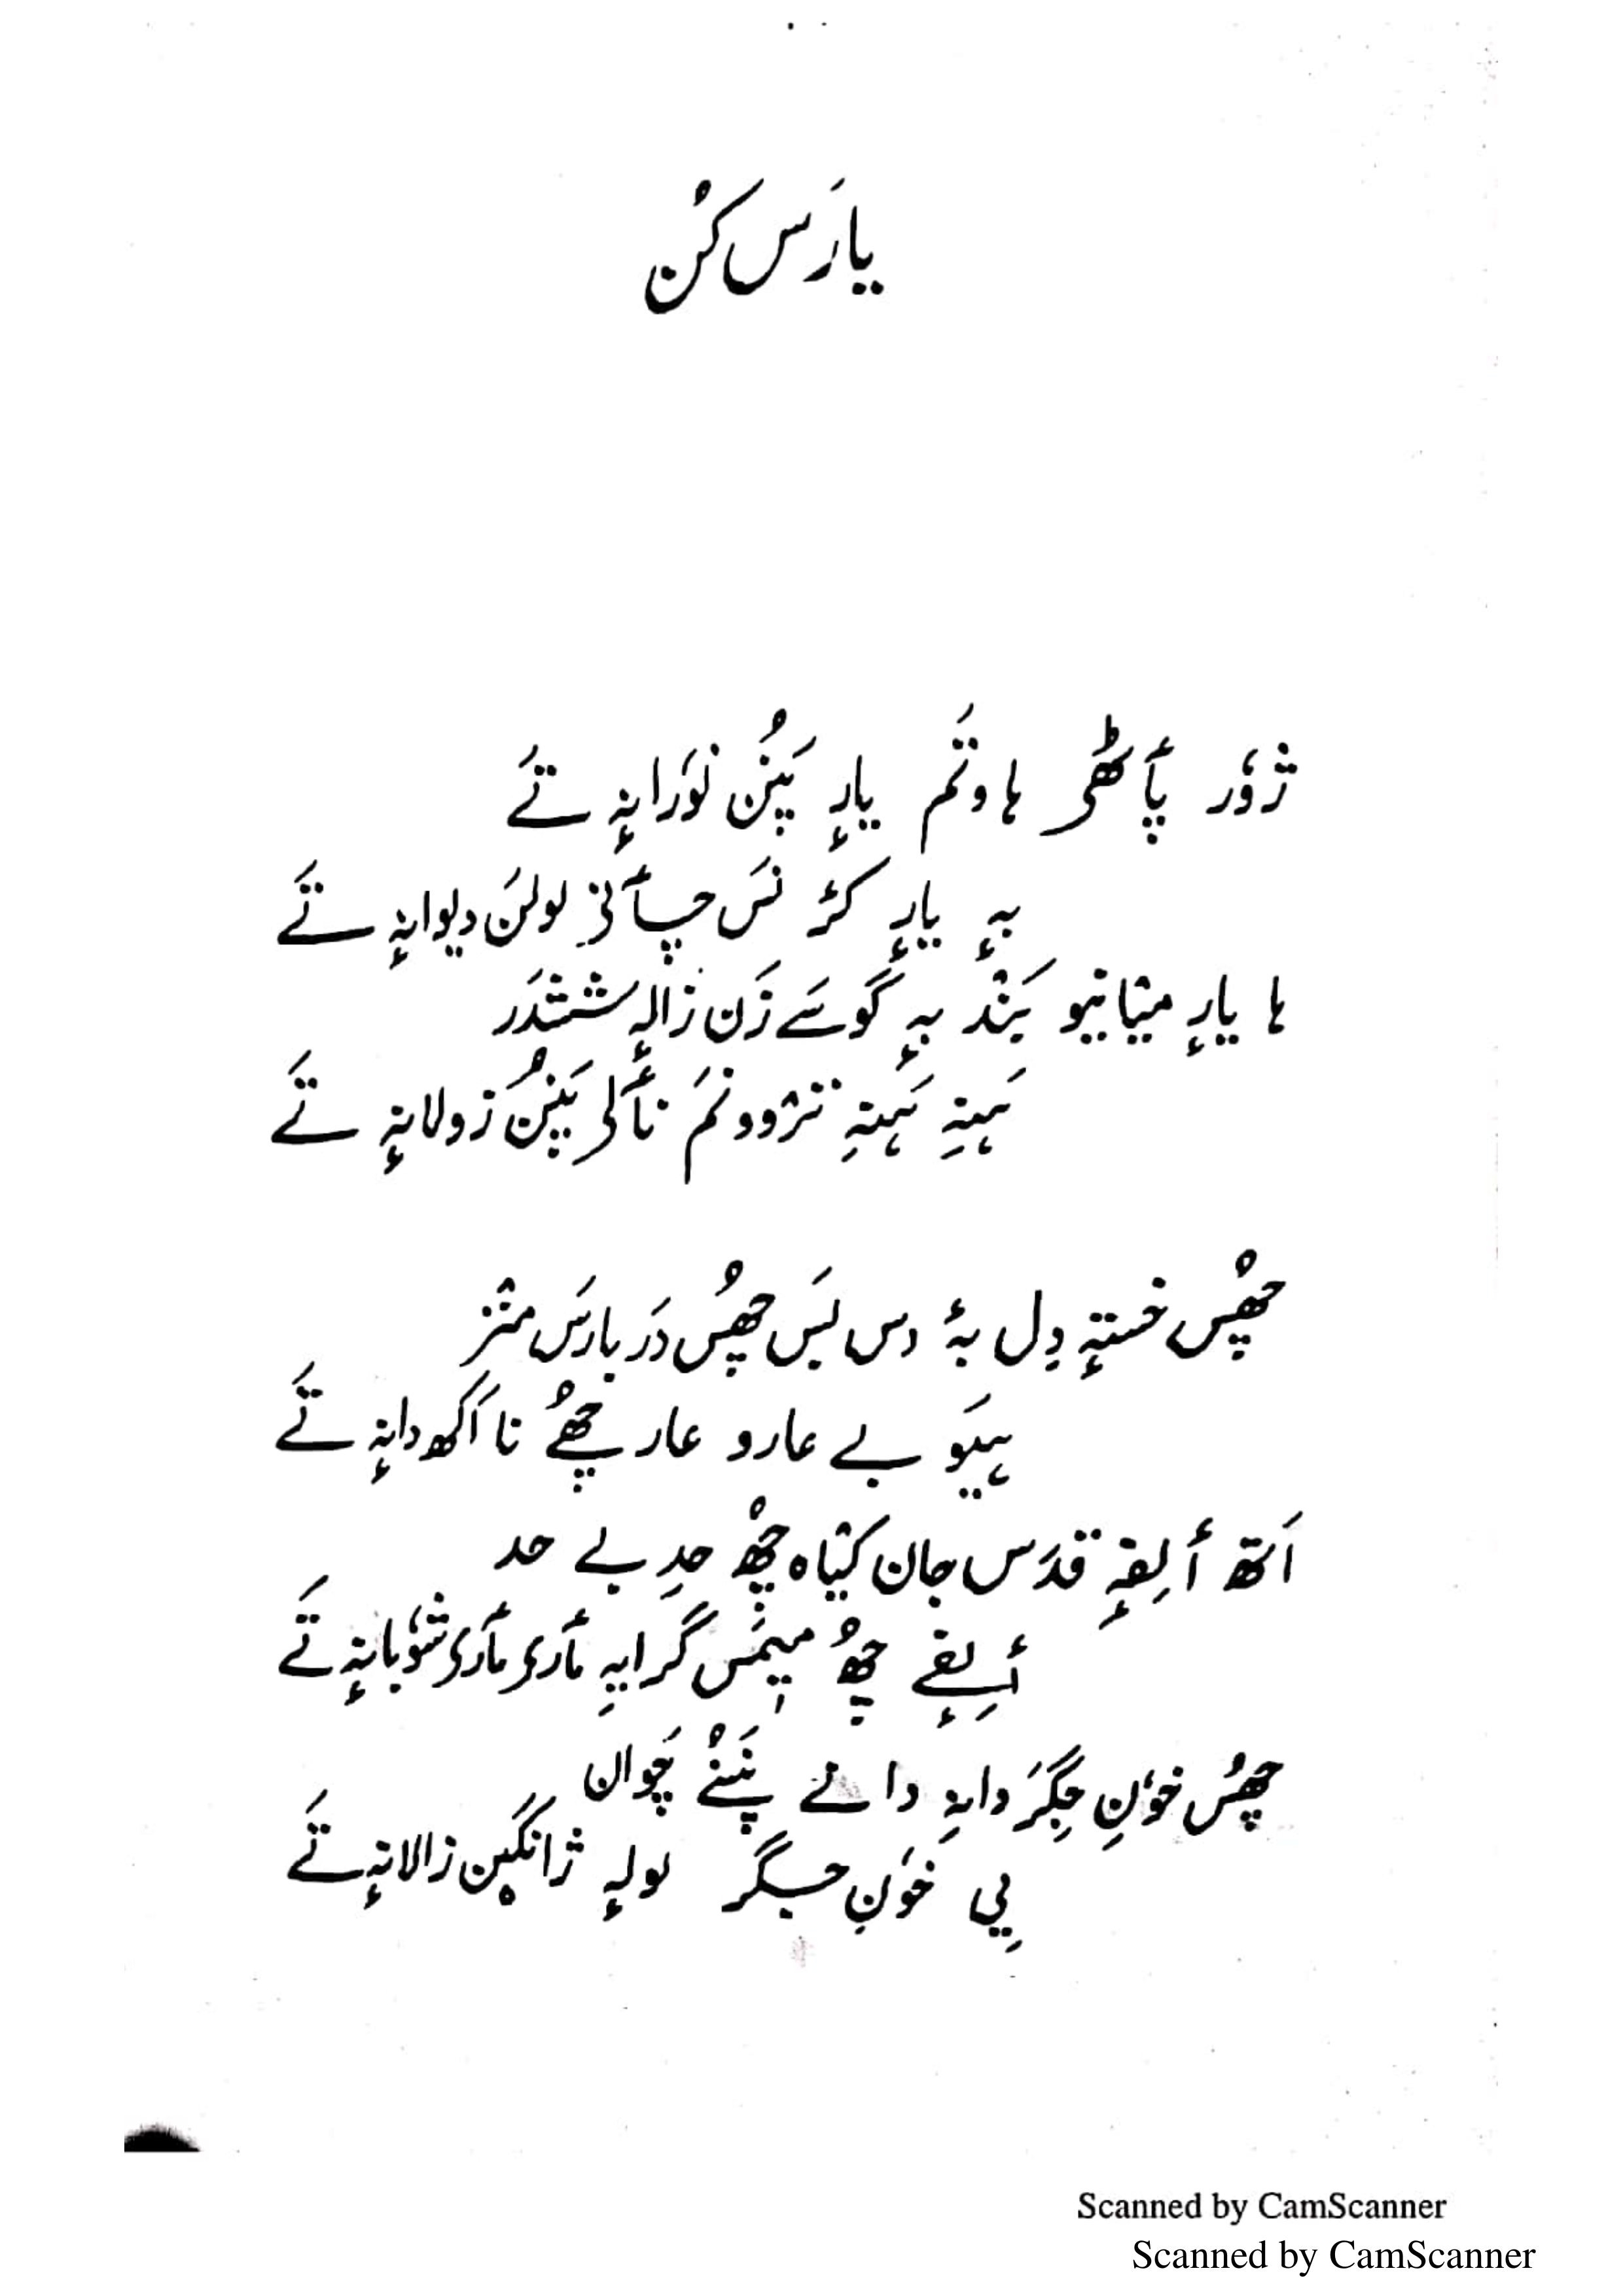 یارَس کُن
ژوٗر پٲٹھۍ ہاوتَم یارٕ پَنُن نوٗرانہٕ تَے
بہٕ یارٕ کرٕ نَس چٲنۍ لولَن دیوانہٕ تَے
ہا یارٕ میٹانیو یَنْد بہٕ گوسَے زَن زالہٕ ششدَر
ہَنہِ ہَنہِ تژوونَم نٲلۍ پَنُن زولانہٕ تَے
چھُس خستہٕ دِل بہٕ وس بَس چھُس دَربارَس منز
ہیَو بے عارو عار چھُے نا اَکھ دانہٕ تَے
اَتھ أَلِفہٕ قدَس جان کیٛاہ چھُ حدِ بے حد
أَلِفٕے چھُ میٖمَس گرایہِ مٲرۍ مٲرۍ شوٗبانہٕ تَے
چھُس خوٗنِ جِگَر دانہِ دانے پَنُنے چَوان
پِی خوٗنِ جگر لولہٕ ژانگیٖن زالانہٕ تَے
Scanned by CamScanner
Scanned by CamScanner